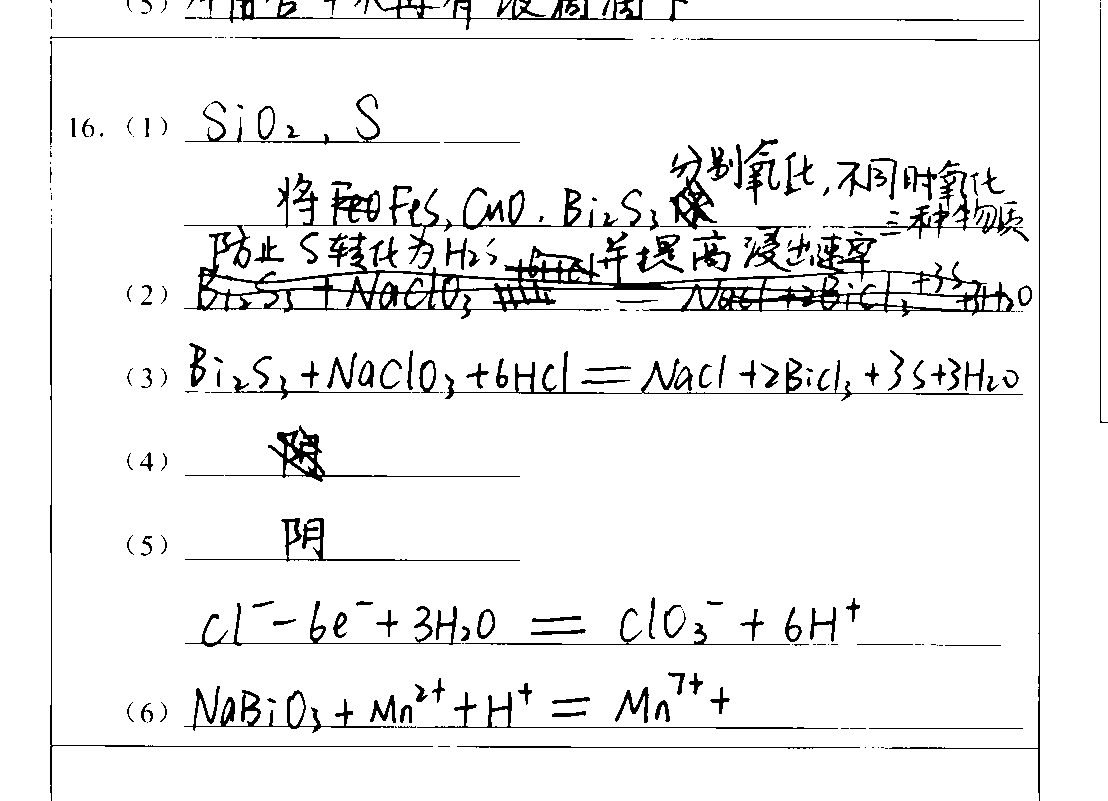 16. (1) SiO₂, S
分别氧化,不同时氧化
将 FeS, CuO. Bi₂S₃
三种物质
防止S转化为H₂S 并提高浸出速率
(2) Bi₂S₃ + NaClO₃ = NaCl + 2BiCl₃ + 3S + 3H₂O
(3) Bi₂S₃ + NaClO₃ + 6HCl = NaCl + 2BiCl₃ + 3S + 3H₂O
(4)
(5) 阴
Cl⁻ - 6e⁻ + 3H₂O = ClO₃⁻ + 6H⁺
(6) NaBiO₃ + Mn²⁺ + H⁺ = Mn⁷⁺ +